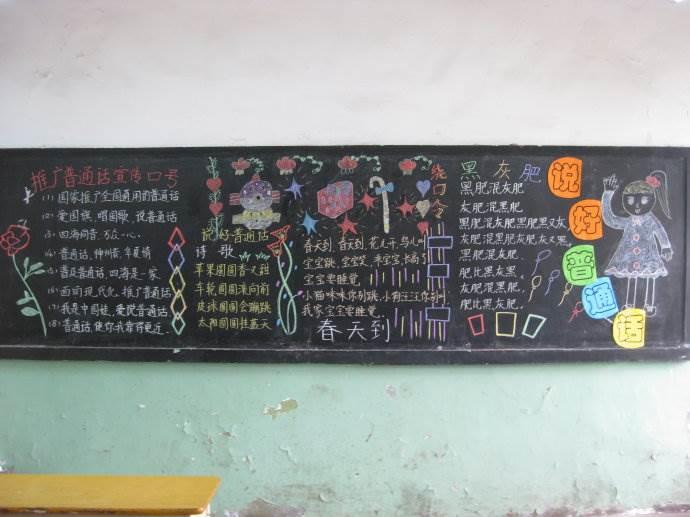 推广普通话宣传口号
(1) 国家推广全国通用的普通话
(2) 爱国旗、唱国歌、说普通话
(3) 四海同音、万众一心。
(4) 普通话，神州音，华夏情
(5) 普及普通话，四海是一家
(6) 面向现代化，推广普通话
(7) 我是中国娃，爱说普通话
(8) 普通话，使你我靠得更近
说好普通话
诗歌
苹果圆圆香又甜
车轮圆圆滚向前
皮球圆圆会蹦跳
太阳圆圆挂蓝天
绕口令
春天到，春天到，花儿开，鸟儿叫
宝宝跳，宝宝笑
宝宝要睡觉
小猫咪咪你别跳，小狗汪汪你别叫
我家宝宝要睡觉
春天到
黑灰肥
黑肥混灰肥
灰肥混黑肥
黑肥混灰肥黑肥黑又灰
灰肥混黑肥灰肥灰又黑。
黑肥混灰肥，
肥比黑灰黑。
灰肥混黑肥，
肥比黑灰肥。
说好普通话